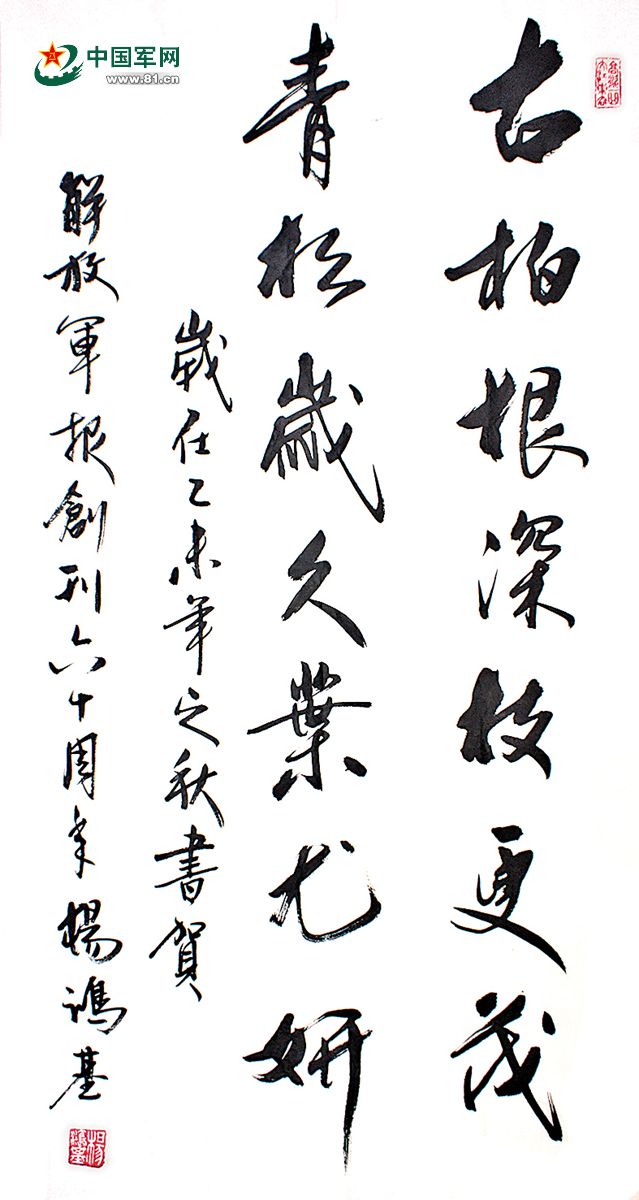 中国军网
www.81.cn
古柏根深枝更茂
青松歲久葉尤妍
歲在乙未年之秋書賀
解放軍報創刊六十周年楊鴻基